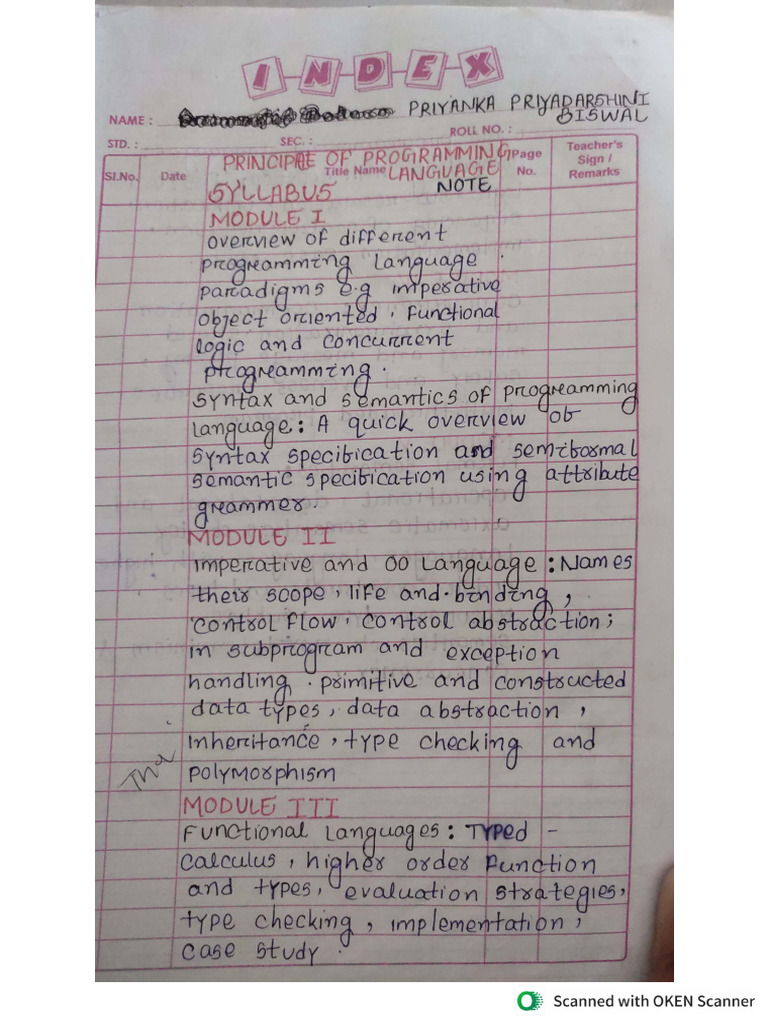 INDEX
NAME : PRIYANKA PRIYADARSHINI
BISWAL
STD. : SEC. : ROLL NO. :
Sl.No. Date Title Name Page No. Teacher's Sign / Remarks
PRINCIPLE OF PROGRAMMING
LANGUAGE
SYLLABUS NOTE
MODULE I
overview of different
programming language
paradigms e.g imperative
object oriented, functional
logic and concurrent
programming.
syntax and semantics of programming
language: A quick overview of
syntax specification and semiformal
semantic specification using attribute
grammer.
MODULE II
Imperative and OO Language: Names
their scope, life and binding,
control flow, control abstraction;
in subprogram and exception
handling. primitive and constructed
data types, data abstraction,
inheritance, type checking and
polymorphism
Tha
MODULE III
Functional Languages: Typed -
calculus, higher order function
and types, evaluation strategies,
type checking, implementation,
case study.
Scanned with OKEN Scanner